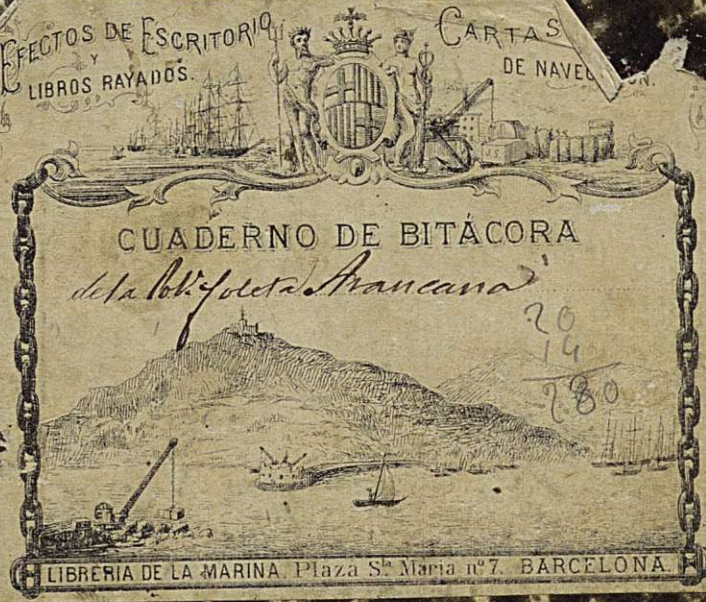 EFECTOS DE ESCRITORIO
Y
LIBROS RAYADOS.
CARTAS
DE NAVEG
ON.
CUADERNO DE BITÁCORA
de la Pol. Goleta Araucana
20
14
280
LIBRERIA DE LA MARINA. Plaza Sta Maria nº 7. BARCELONA.